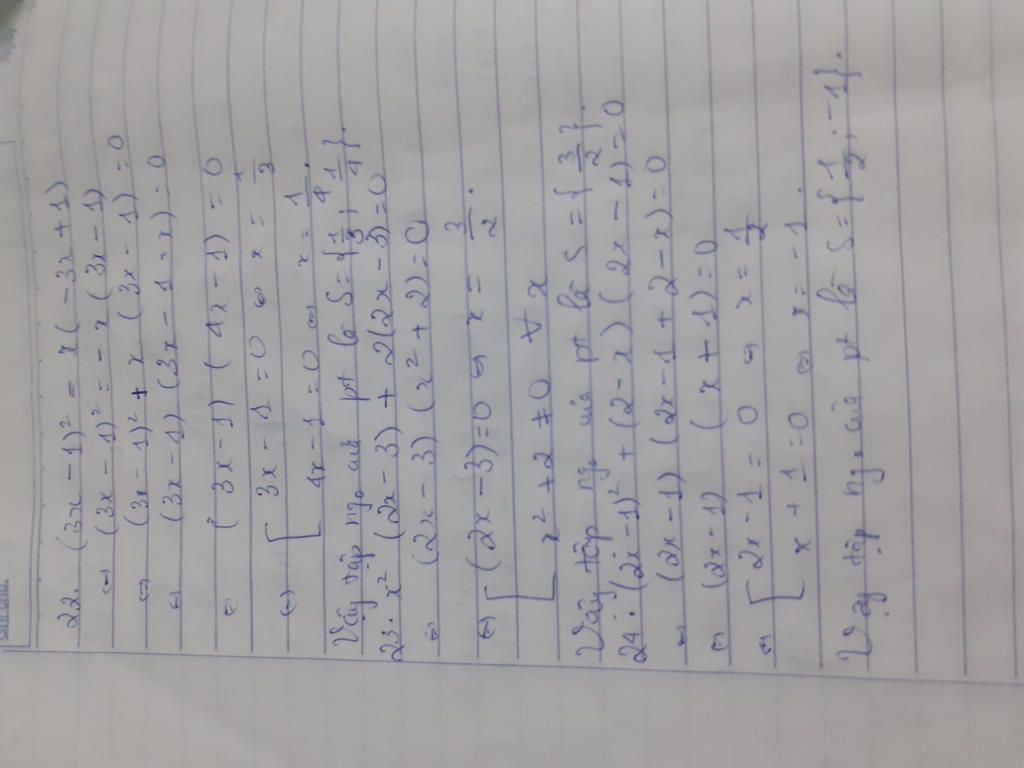 22. (3x − 1)² = x(−3x + 1)
⇔ (3x − 1)² = − x(3x − 1)
⇔ (3x − 1)² + x (3x − 1) = 0
⇔ (3x − 1) (3x − 1 + x) = 0
⇔ (3x − 1) (4x − 1) = 0
⇔ [ 3x − 1 = 0 ⇔ x = 1/3
4x − 1 = 0 ⇔ x = 1/4.
Vậy tập ngo của pt là S = {1/3, 1/4}.
23. x² (2x − 3) + 2(2x − 3) = 0
⇔ (2x − 3) (x² + 2) = 0
⇔ [ (2x − 3) = 0 ⇔ x = 3/2.
x² + 2 ≠ 0 ∀ x
Vậy tập ngo của pt là S = {3/2}.
24. (2x − 1)² + (2 − x) (2x − 1) = 0
⇔ (2x − 1) (2x − 1 + 2 − x) = 0
⇔ (2x − 1) (x + 1) = 0
⇔ [ 2x − 1 = 0 ⇔ x = 1/2
x + 1 = 0 ⇔ x = −1.
Vậy tập ngo của pt là S = {1/2, −1}.